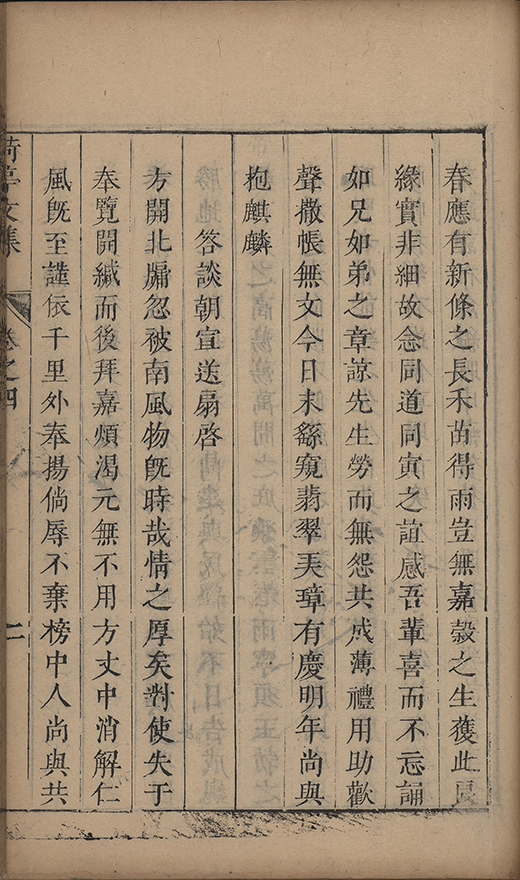 春應有新條之長禾苗得雨豈無嘉穀之生獲此良
緣實非細故念同道同寅之誼感吾輩喜而不忘誦
如兄如弟之章諒先生勞而無怨共成薄禮用助歡
聲撒帳無文今日未繇窺翡翠弄璋有慶明年尚與
抱麒麟
答談朝宣送扇啓
方開北牖忽被南風物旣時哉情之厚矣對使失于
奉覽開緘而後拜嘉煩渴元無不用方丈中消解仁
風旣至謹依千里外奉揚倘辱不棄榜中人尚與共
亭文集
卷之四
二